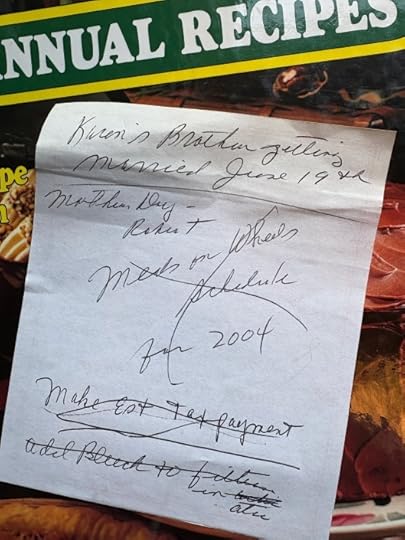 ANNUAL RECIPES
pe
Karen's Brother getting
Married June 19th
Mothers Day -
Robert
Meals on Wheels
Schedule
for 2004
Make Est Tax payment
add Bleach to filter
in
attic